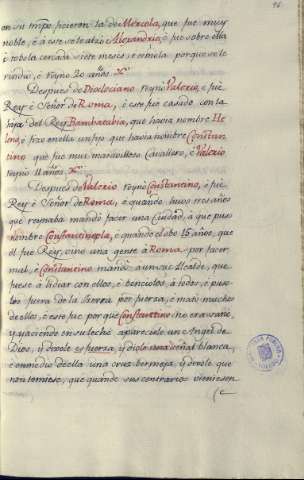 en su tiempo ficieron la de Mercola, que fue muy
noble, è à este se le alzó Alexandria, è fue sobre ella
è tobola cercada siete meses, è
rindió, è reyno 20 años.
Despues de Diocleciano reynò Valerio, è fuè
Rey è Señor de Roma, è este fue casado con la
hija del Rey que havia nombre He
lena, è fizo en ella un fijo que havia nombre Constan
tino que fue mui maravilloso Cavallero, è Valerio
reyno 11 años.
Despues de Valerio reynò Constantino, è fue
Rey è Señor de Roma, è quando huvo tres años
que reynaba mandò facer una Ciudad, à que puso
nombre Constantinopla, è quando ella obo 15 años, que
él fue Rey, vino una gente à Roma por facer
mal, è Constantino mandò à un su Alcalde, que
fuese à lidiar con ellos, è benciolos à todos, è pu
los fuera de la tierra por fuerza, è matò muchos
de ellos, è este fue por que Constantino no era
y yaciendo en su lecho apareciole un Angel de
Dios, y diole esfuerza, y diole una señal blanca,
è en medio de ella una cruz bermeja, y dixole que
non temiese, que quando sus contrarios viniesen